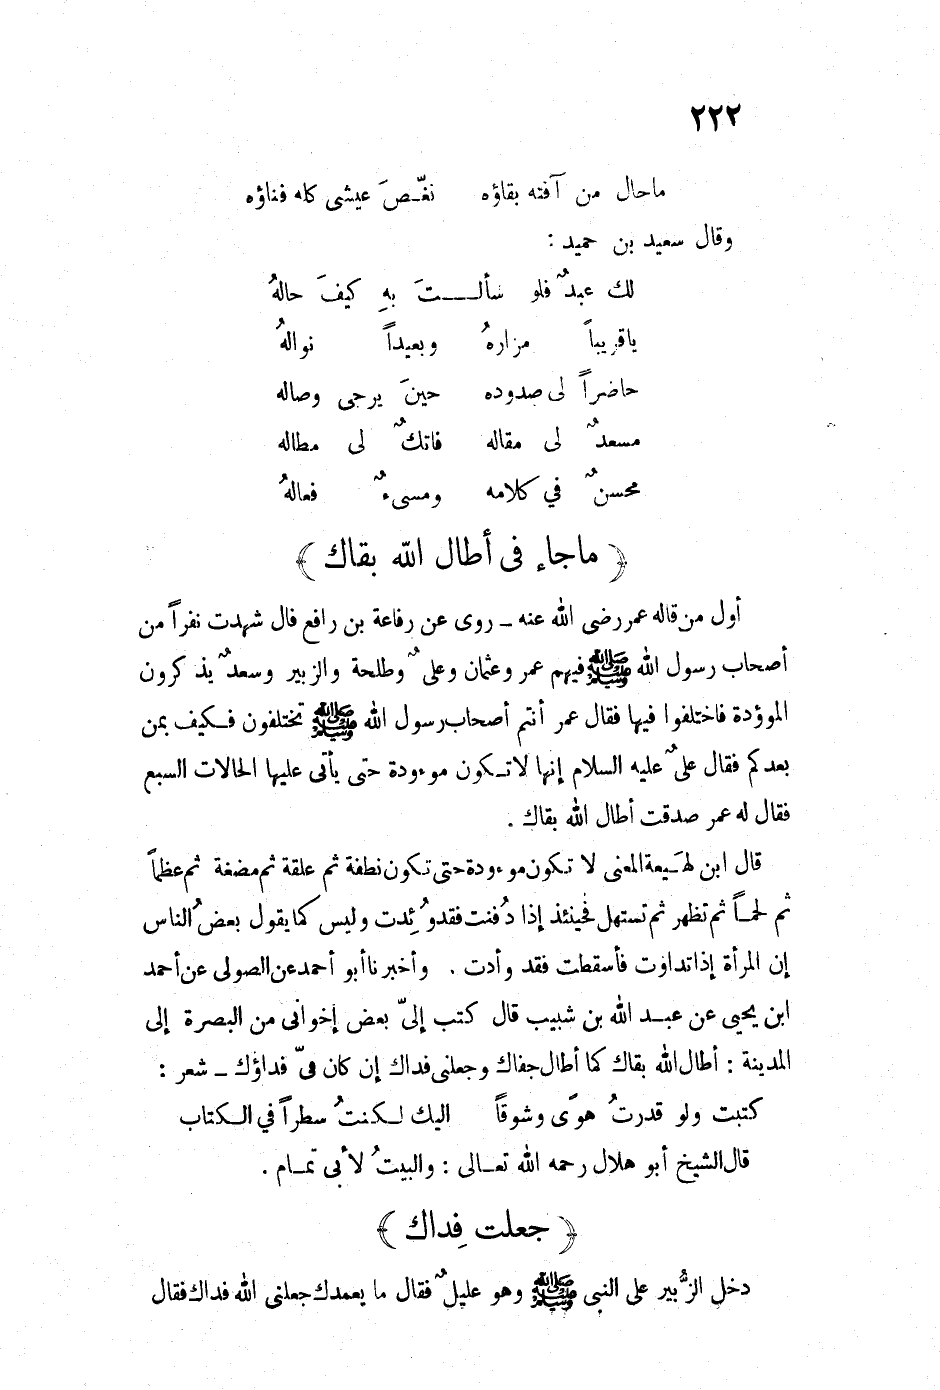 ٢٢٢
ماحال من آفته بقاؤه نغّـصَ عيشى كله فناؤه
وقال سعيد بن حميد :
لك عبدٌ فلو سألـــتَ بهِ كيفَ حالهُ
ياقريباً مزارهُ وبعيداً نوالهُ
حاضراً لى صدوده حينَ يرجى وصاله
مسعدٌ لى مقاله فاتكٌ لى مطاله
محسنٌ في كلامه ومسىءٌ فعالهُ
﴿ ماجاء فى أطال الله بقاك ﴾
أول من قاله عمر رضى الله عنه ـ روى عن رفاعة بن رافع قال شهدت نفراً من
أصحاب رسول الله ﷺ فيهم عمر وعثمان وعلىٌ وطلحة والزبير وسعدٌ يذكرون
الموؤدة فاختلفوا فيها فقال عمر أنتم أصحاب رسول الله ﷺ تختلفون فـكيف بمن
بعدكم فقال علىٌ عليه السلام إنها لاتـكون موءودة حتى يأتى عليها الحالات السبع
فقال له عمر صدقت أطال الله بقاك .
قال ابن لهَـيعة المعنى لا تـكون موءودة حتى تكون نطفة ثم علقة ثم مضغة ثم عظماً
ثم لحمـاً ثم تظهر ثم تستهل فحينئذ إذا دُفنت فقد وُئِدت وليس كما يقول بعضُ الناس
إن المرأة إذا تداوت فأسقطت فقد وأدت . وأخبرنا أبو أحمد عن الصولى عن أحمد
ابن يحيى عن عبـد الله بن شبيب قال كتب إلىّ بعض إخوانى من البصرة إلى
المدينة : أطال الله بقاك كما أطال جفاك وجعلنى فداك إن كان فىّ فداؤك ـ شعر :
كتبت ولو قدرتُ هوًى وشوقاً اليك لـكنتُ سطراً في الـكتاب
قال الشيخ أبو هلال رحمه الله تعـالى : والبيتُ لأبى تمـام .
﴿ جعلت فِداك ﴾
دخل الزُّبير على النبى ﷺ وهو عليلٌ فقال ما يعمدك جعلنى الله فداك فقال